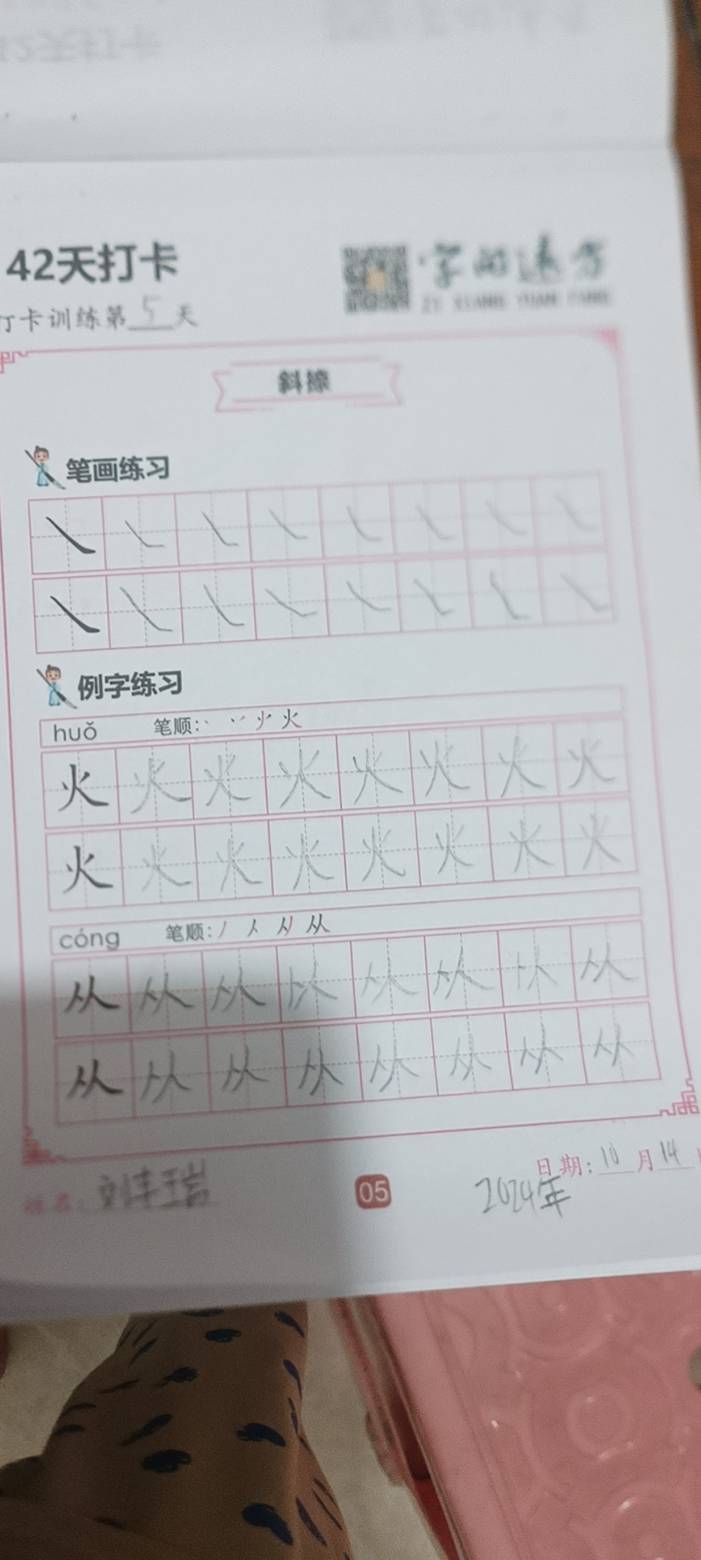 42天打卡
字的远方
打卡训练第5天
ZI XIANG YUAN FANG
斜捺
笔画练习
㇏ ㇏ ㇏ ㇏ ㇏ ㇏ ㇏ ㇏
㇏ ㇏ ㇏ ㇏ ㇏ ㇏ ㇏ ㇏
例字练习
huǒ 笔顺: 火
火 火 火 火 火 火 火 火
火 火 火 火 火 火 火 火
cóng 笔顺: 丿 人 从
从 从 从 从 从 从 从 从
从 从 从 从 从 从 从 从
日期: 10月14
姓名: 刘丰瑞
05
2024年